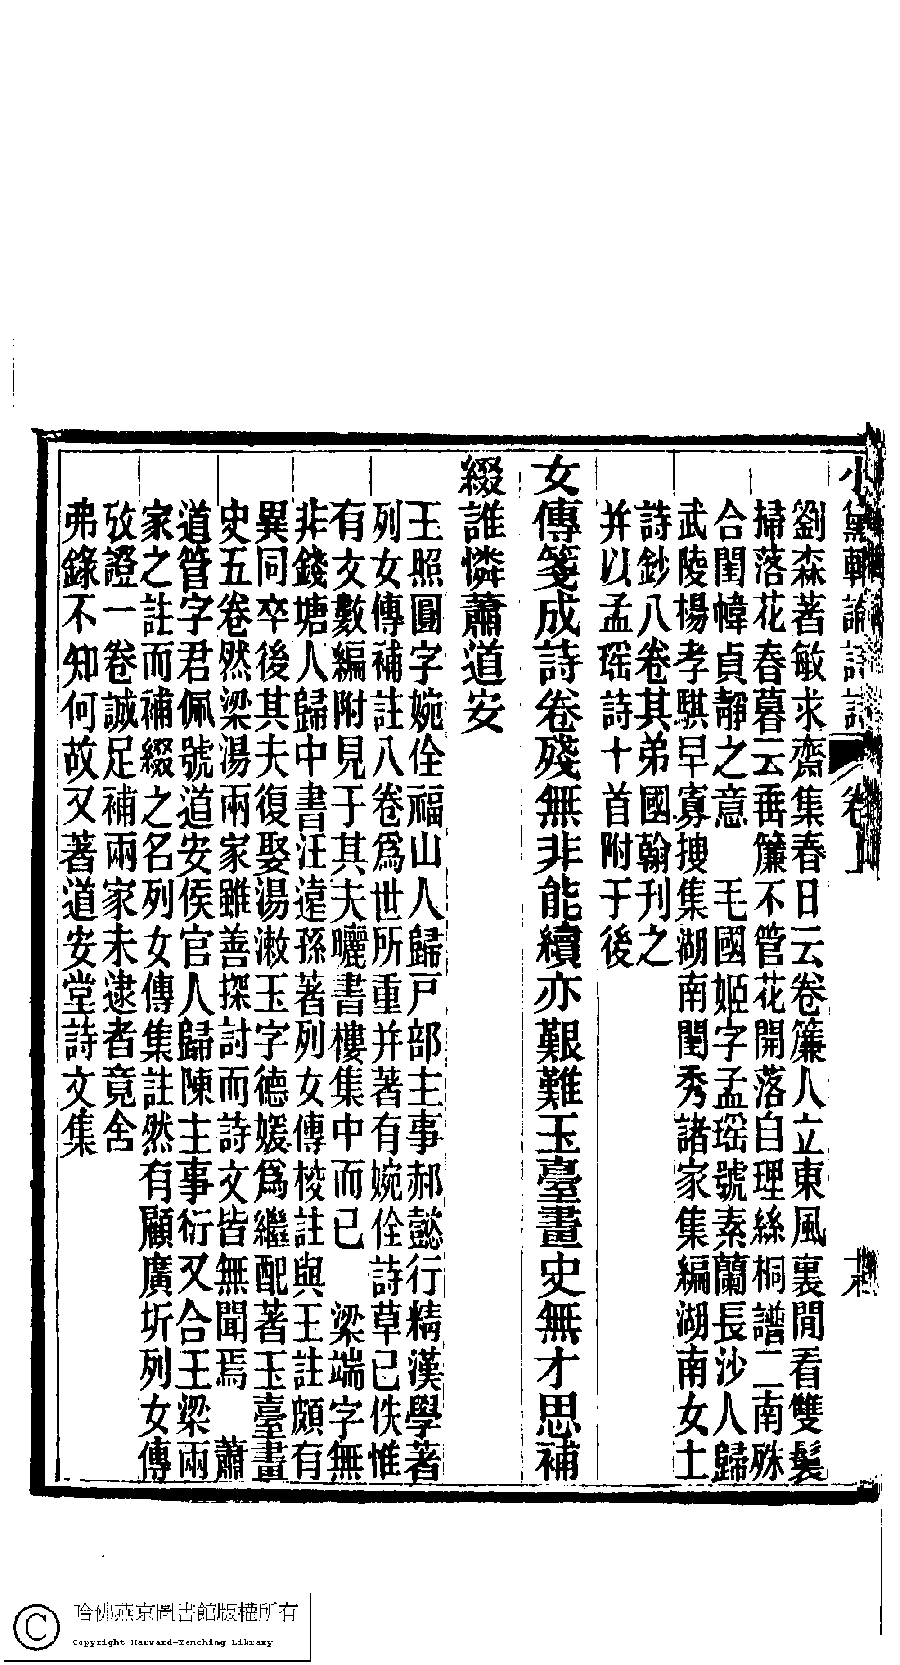 小黛軒論詩詩 卷上
劉森著敏求齋集春日云卷簾人立東風裏閒看雙鬟
掃落花春暮云垂簾不管花開落自理絲桐譜二南殊
合閨幃貞靜之意　毛國姬字孟瑶號素蘭長沙人歸
武陵楊孝騏早寡搜集湖南閨秀諸家集編湖南女士
詩鈔八卷其弟國翰刊之
并以孟瑶詩十首附于後
女傳箋成詩卷殘無非能續亦艱難玉臺畫史無才思補
綴誰憐蕭道安
王照圓字婉佺福山人歸戸部主事郝懿行精漢學著
列女傳補註八卷爲世所重并著有婉佺詩草已佚惟
有文數編附見于其夫曬書樓集中而已　梁端字無
非錢塘人歸中書汪遠孫著列女傳校註與王註頗有
異同卒後其夫復娶湯漱玉字德媛爲繼配著玉臺畫
史五卷然梁湯兩家雖善探討而詩文皆無聞焉　蕭
道管字君佩號道安侯官人歸陳主事衍又合王梁兩
家之註而補綴之名列女傳集註然有顧廣圻列女傳
攷證一卷誠足補兩家未逮者竟舍
弗錄不知何故又著道安堂詩文集
哈佛燕京圖書館版權所有
Copyright Harvard-Yenching Library